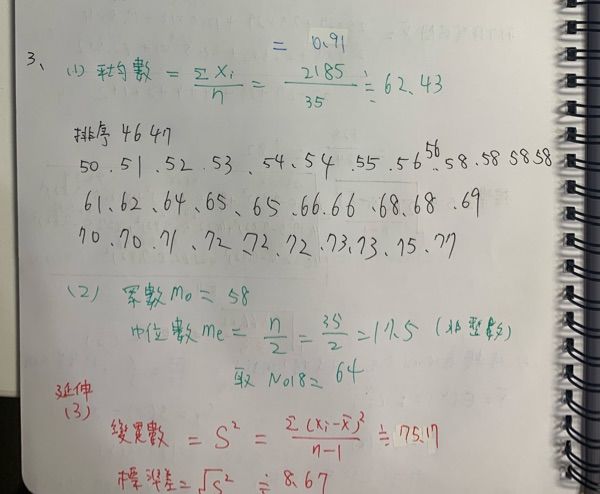 = 0.91
3、
(1) 平均數 = Σxi/n = 2185/35 ≒ 62.43
排序 46 47
50、51、52、53、54、54、55、56、56、58、58 58 58
61、62、64、65、65、66、66、68、68、69
70、70、71、72、72、72、73、73、75、77
(2) 眾數 Mo = 58
中位數 me = n/2 = 35/2 = 17.5 (非整數)
取 No18 = 64
延伸
(3)
變異數 = S² = Σ(xi-x̄)²/n-1 ≒ 75.17
標準差 = √S² ≒ 8.67